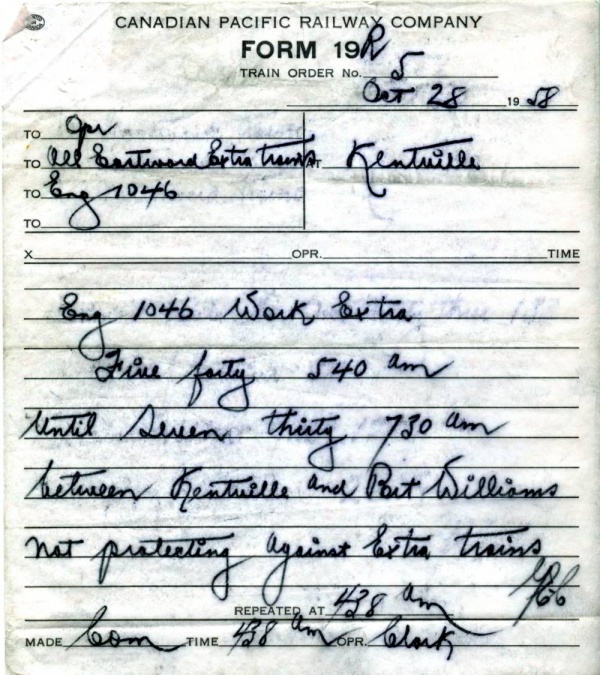 CANADIAN PACIFIC RAILWAY COMPANY
FORM 19R
TRAIN ORDER No. 5
Oct 28 1958
TO Opr
TO All Eastward Extra trains AT Kentville
TO Eng 1046
TO
X OPR. TIME
Eng 1046 Work Extra
Five forty 540 am
Until Seven thirty 730 am
between Kentville and Port Williams
not protecting against Extra trains
REPEATED AT 438 am
MADE Com TIME 438 am OPR. Clark